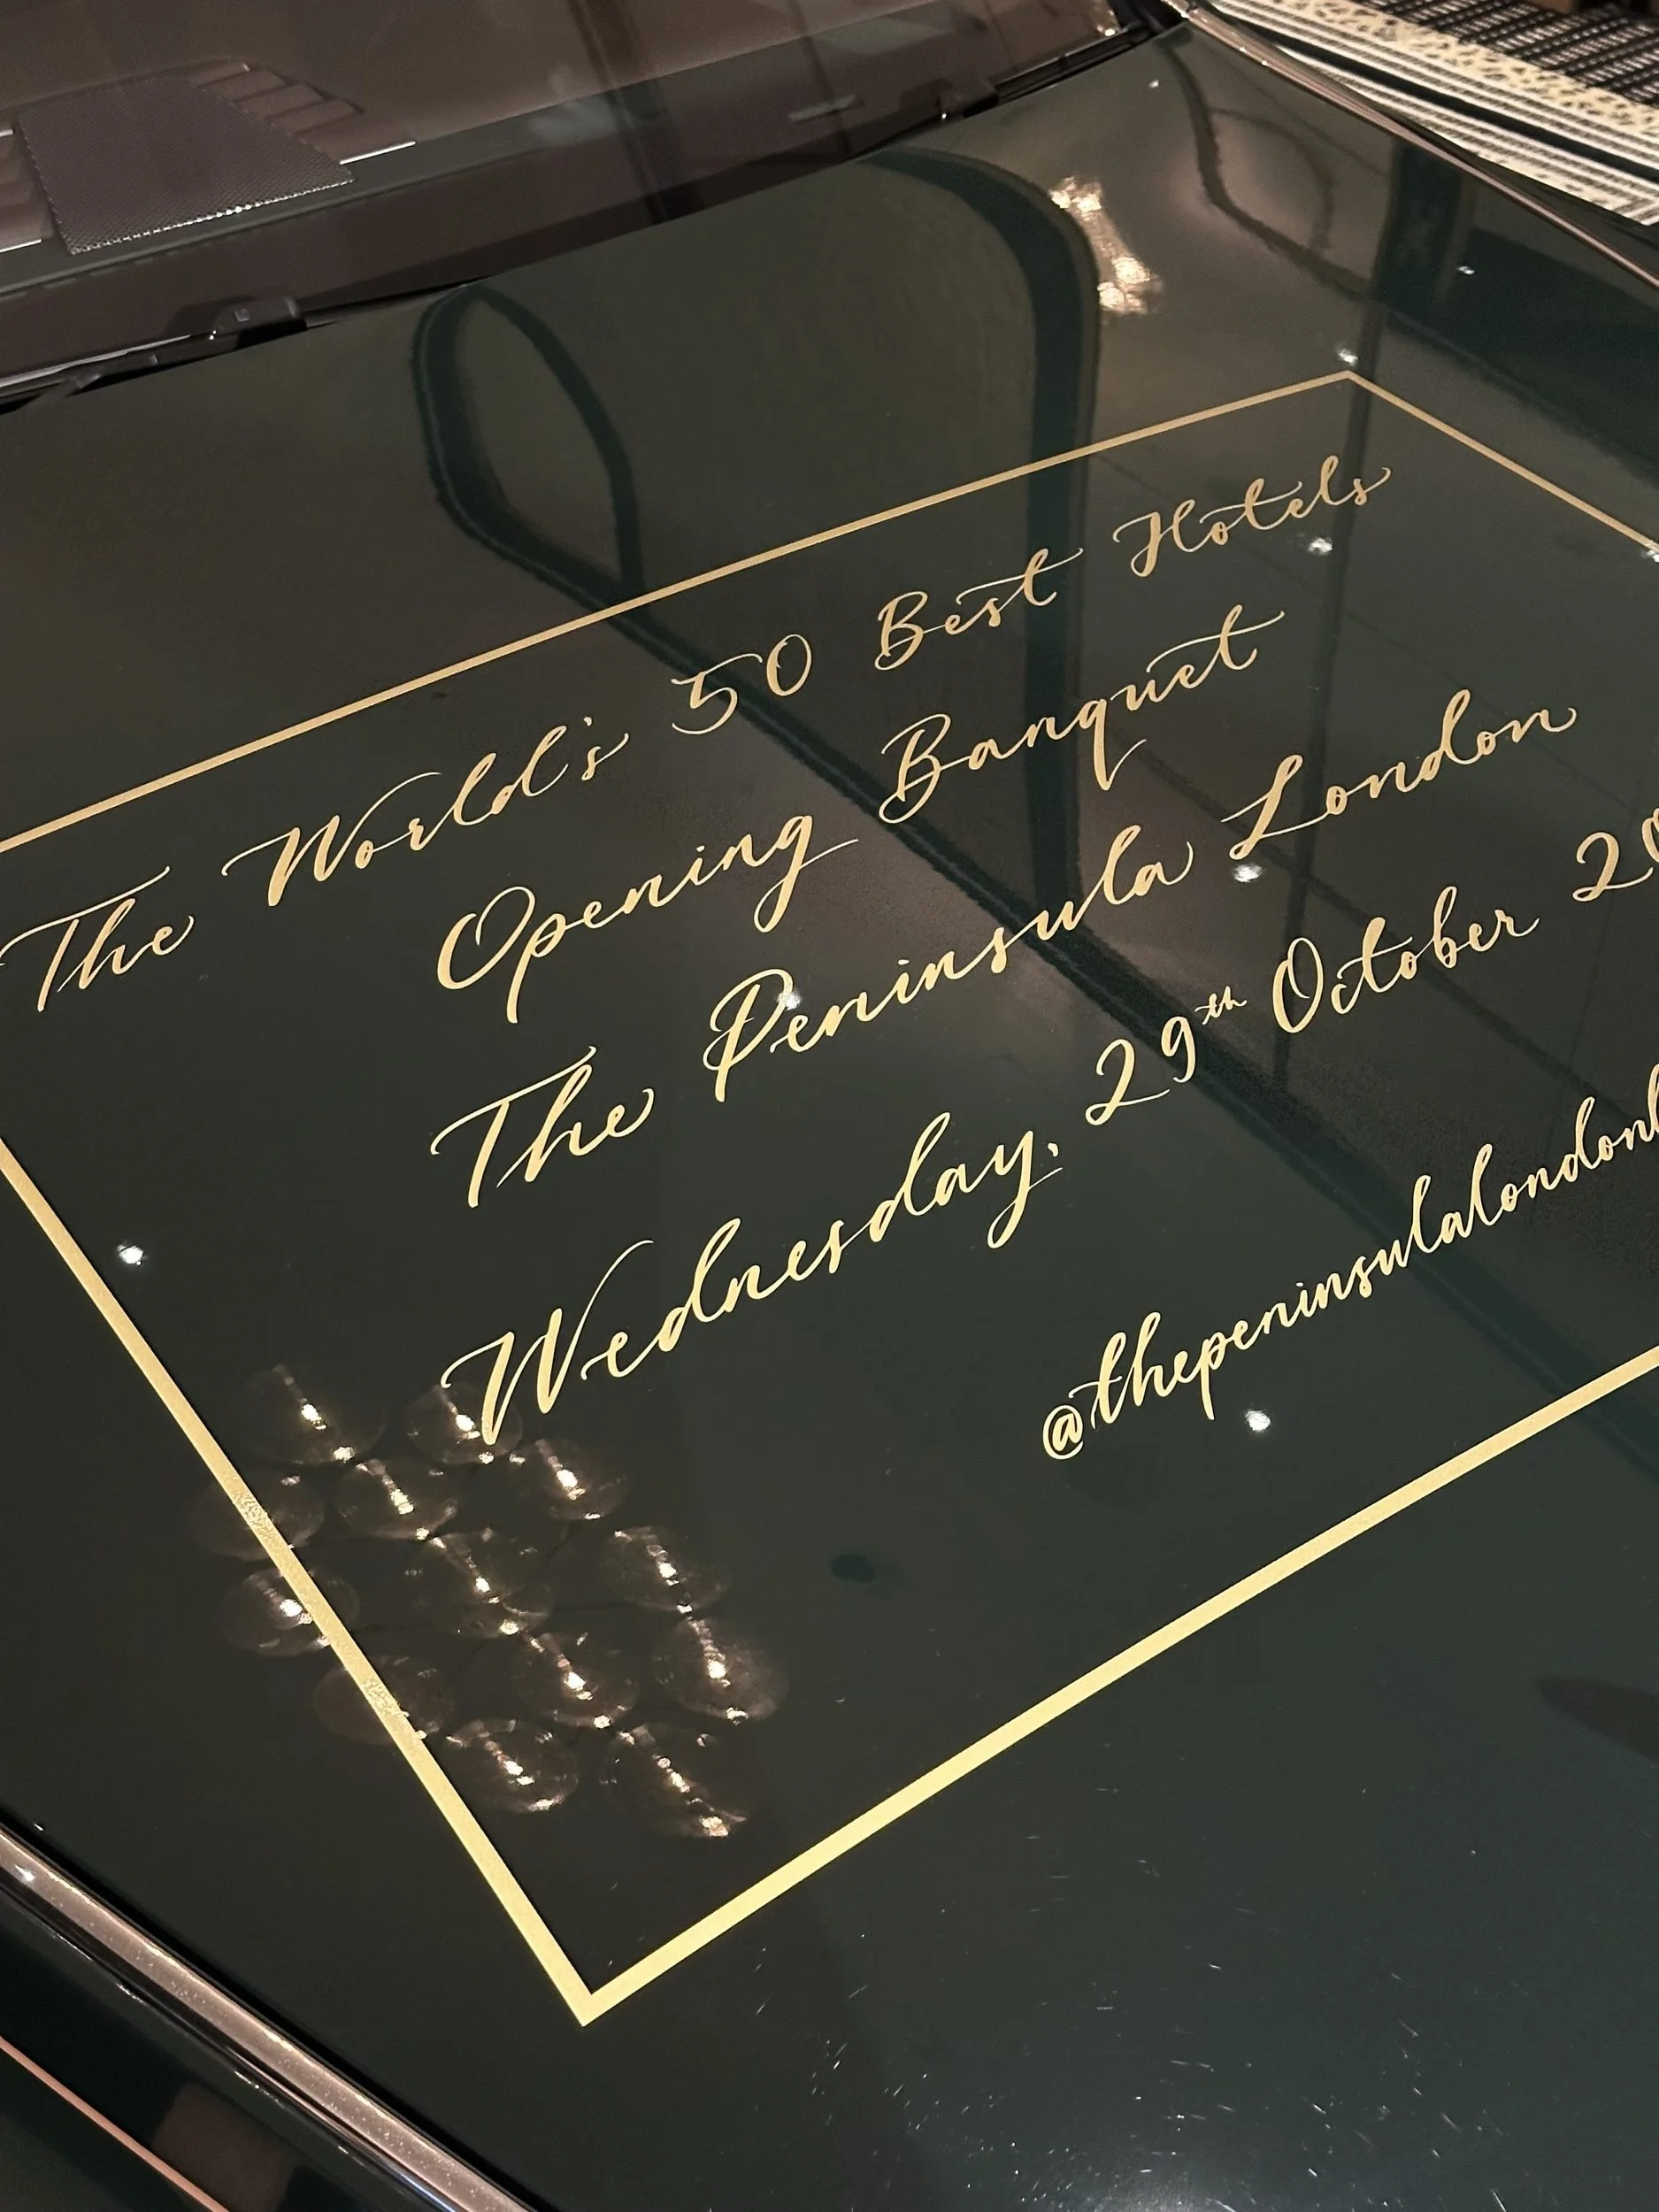 The World's 50 Best Hotels
Opening Banquet
The Peninsula London
Wednesday, 29th October
@thepeninsulalondon